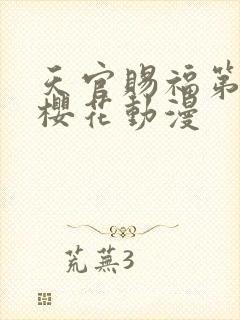 天官賜福第
櫻花動漫
荒蕪3